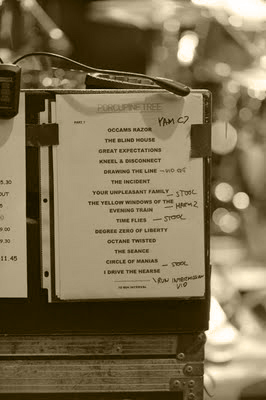 PORCUPINE TREE
PART 1
OCCAMS RAZOR
THE BLIND HOUSE
GREAT EXPECTATIONS
KNEEL & DISCONNECT
DRAWING THE LINE
THE INCIDENT
YOUR UNPLEASANT FAMILY - STOOL
THE YELLOW WINDOWS OF THE
EVENING TRAIN
TIME FLIES - STOOL
DEGREE ZERO OF LIBERTY
OCTANE TWISTED
THE SEANCE
CIRCLE OF MANIAS - STOOL
I DRIVE THE HEARSE
RUN INTERMISSION
VID
5.30
OUT
9.00
11.45